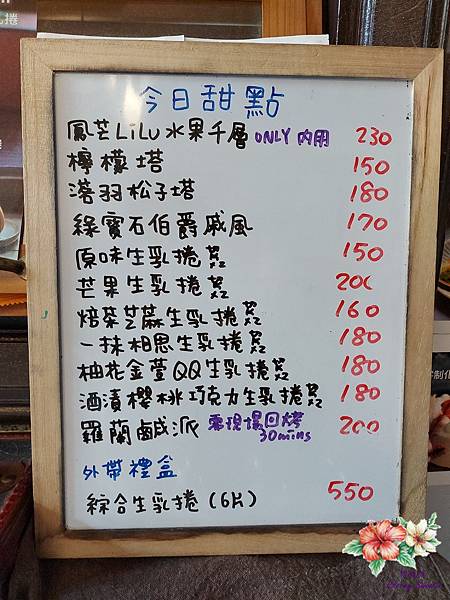 今日甜點
鳳芒LiLu水果千層 ONLY 內用 230
檸檬塔 150
落羽松子塔 180
綠寶石伯爵戚風 170
原味生乳捲 150
芒果生乳捲 200
焙茶芝麻生乳捲 160
一抹相思生乳捲 180
柚花金萱QQ生乳捲 180
酒漬櫻桃巧克力生乳捲 180
羅蘭鹹派 需現場回烤 30mins 200
外帶禮盒
綜合生乳捲(6片) 550